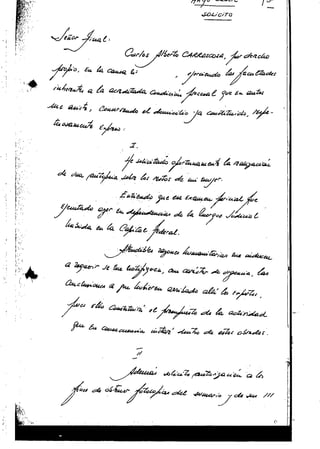 SOLICITO
Señor Fiscal:
Carlos Alberto CARRASCOSA, por derecho
propio, en la causa Nº , ejerciendo las facultades
inherentes a la acreditada condición procesal que en autos
me asiste, conservando el domicilio ya constituido, respe-
tuosamente expreso:
I
He solicitado oportunamente la realización
de una autopsia sobre los restos de mi mujer.
Entiendo que ese examen pericial fue
ejecutado ayer en dependencias de la Morgue Judicial
habida en la Capital Federal.
Atendibles razones humanitarias me inducen
a requerir se me anticipen, con carácter de urgencia, las
conclusiones a que hubiesen arribado allí los peritos,
pues ellas constituirán el presupuesto de la actividad
que en consecuencia instaré dentro de estos obrados.
II
Además solicito autorización a los
fines de obtener fotocopias del sumario y de sus ///